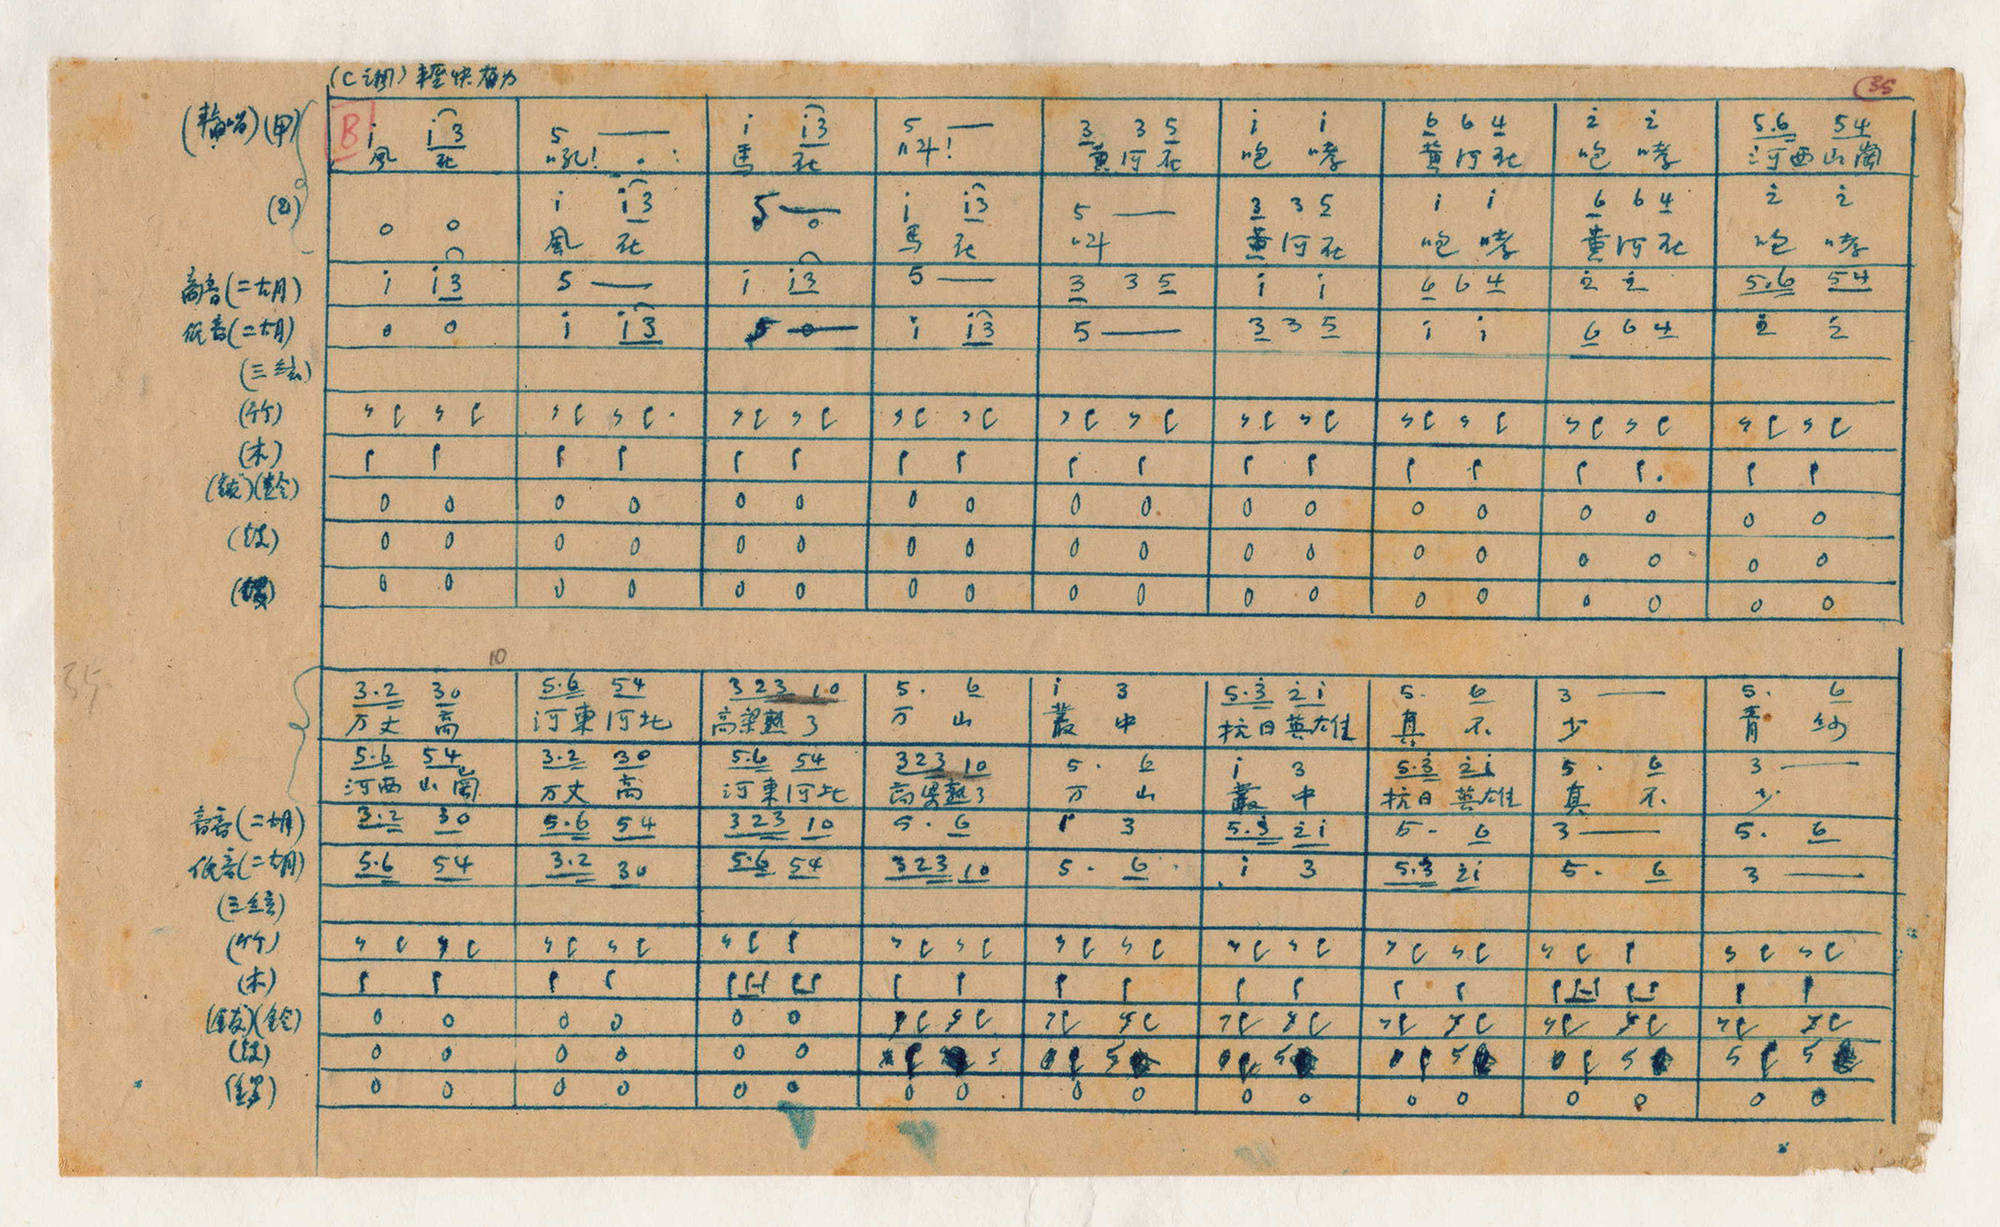 (C調) 輕快有力
35
(輪唱)(甲) B i i3 5 — i i3 5 — 3 3 5 i i 6 6 4 2 2 5.6 54
風 在 吼! 馬 在 叫! 黃河在 咆 哮 黃河在 咆 哮 河西山崗
(乙) 0 0 i i3 0 i i3 5 — 3 3 5 i i 6 6 4 2 2
風 在 馬 在 叫 黃河在 咆 哮 黃河在 咆 哮
高音(二胡) i i3 5 — i i3 5 — 3 3 5 i i 6 6 4 2 2 5.6 54
低音(二胡) 0 0 i i3 0 i i3 5 — 3 3 5 i i 6 6 4 2 2
(三絃)
(竹)
(木)
(鈸)(鈴) 0 0 0 0 0 0 0 0 0 0 0 0 0 0 0 0 0 0
(鼓) 0 0 0 0 0 0 0 0 0 0 0 0 0 0 0 0 0 0
0 0 0 0 0 0 0 0 0 0 0 0 0 0 0 0 0 0
10
35
3.2 30 5.6 54 323 10 5. 6 i 3 5.3 2i 5. 6 3 — 5. 6
万丈 高 河東河北 高梁熟了 万 山 叢 中 抗日英雄 真 不 少 青 紗
5.6 54 3.2 30 5.6 54 323 10 5. 6 i 3 5.3 2i 5. 6 3 —
河西山崗 万丈 高 河東河北 高梁熟了 万 山 叢 中 抗日英雄 真 不 少
高音(二胡) 3.2 30 5.6 54 323 10 5. 6 i 3 5.3 2i 5. 6 3 — 5. 6
低音(二胡) 5.6 54 3.2 30 5.6 54 323 10 5. 6 i 3 5.3 2i 5. 6 3 —
(三絃)
(竹)
(木)
(鈸)(鈴) 0 0 0 0 0 0
(鼓) 0 0 0 0 0 0
(鑼) 0 0 0 0 0 0 0 0 0 0 0 0 0 0 0 0 0 0